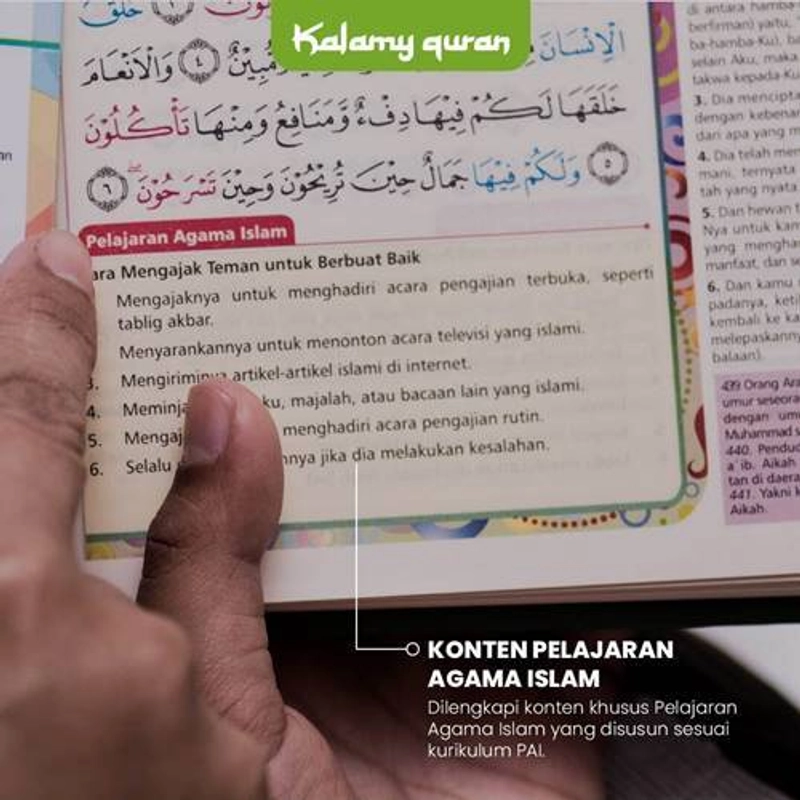 Kalamy quran
الْاِنْسَانَ
مُّبِيْنٌ ٤ وَالْاَنْعَامَ
خَلَقَهَا لَكُمْ فِيْهَا دِفْءٌ وَّمَنَافِعُ وَمِنْهَا تَأْكُلُوْنَ
٥ وَلَكُمْ فِيْهَا جَمَالٌ حِيْنَ تُرِيْحُوْنَ وَحِيْنَ تَسْرَحُوْنَ ٦
Pelajaran Agama Islam
ara Mengajak Teman untuk Berbuat Baik
Mengajaknya untuk menghadiri acara pengajian terbuka, seperti
tablig akbar.
Menyarankannya untuk menonton acara televisi yang islami.
3. Mengiriminya artikel-artikel islami di internet.
4. Meminja ku, majalah, atau bacaan lain yang islami.
5. Mengaj menghadiri acara pengajian rutin.
6. Selalu nnya jika dia melakukan kesalahan.
di antara hamba-
berfirman) yaitu,
ba-hamba-Ku), ba
selain Aku, maka
takwa kepada-Ku
3. Dia mencipta
dengan kebenar
dari apa yang m
4. Dia telah men
mani, ternyata
tah yang nyata
5. Dan hewan t
Nya untuk kam
yang menghas
manfaat, dan se
6. Dan kamu
padanya, keti
kembali ke ka
melepaskanny
balaan).
439 Orang Ara
umur seseora
dengan umu
Muhammad s
440. Pendud
a`ib. Aikah
tan di daera
441. Yakni k
Aikah.
KONTEN PELAJARAN
AGAMA ISLAM
Dilengkapi konten khusus Pelajaran
Agama Islam yang disusun sesuai
kurikulum PAI.